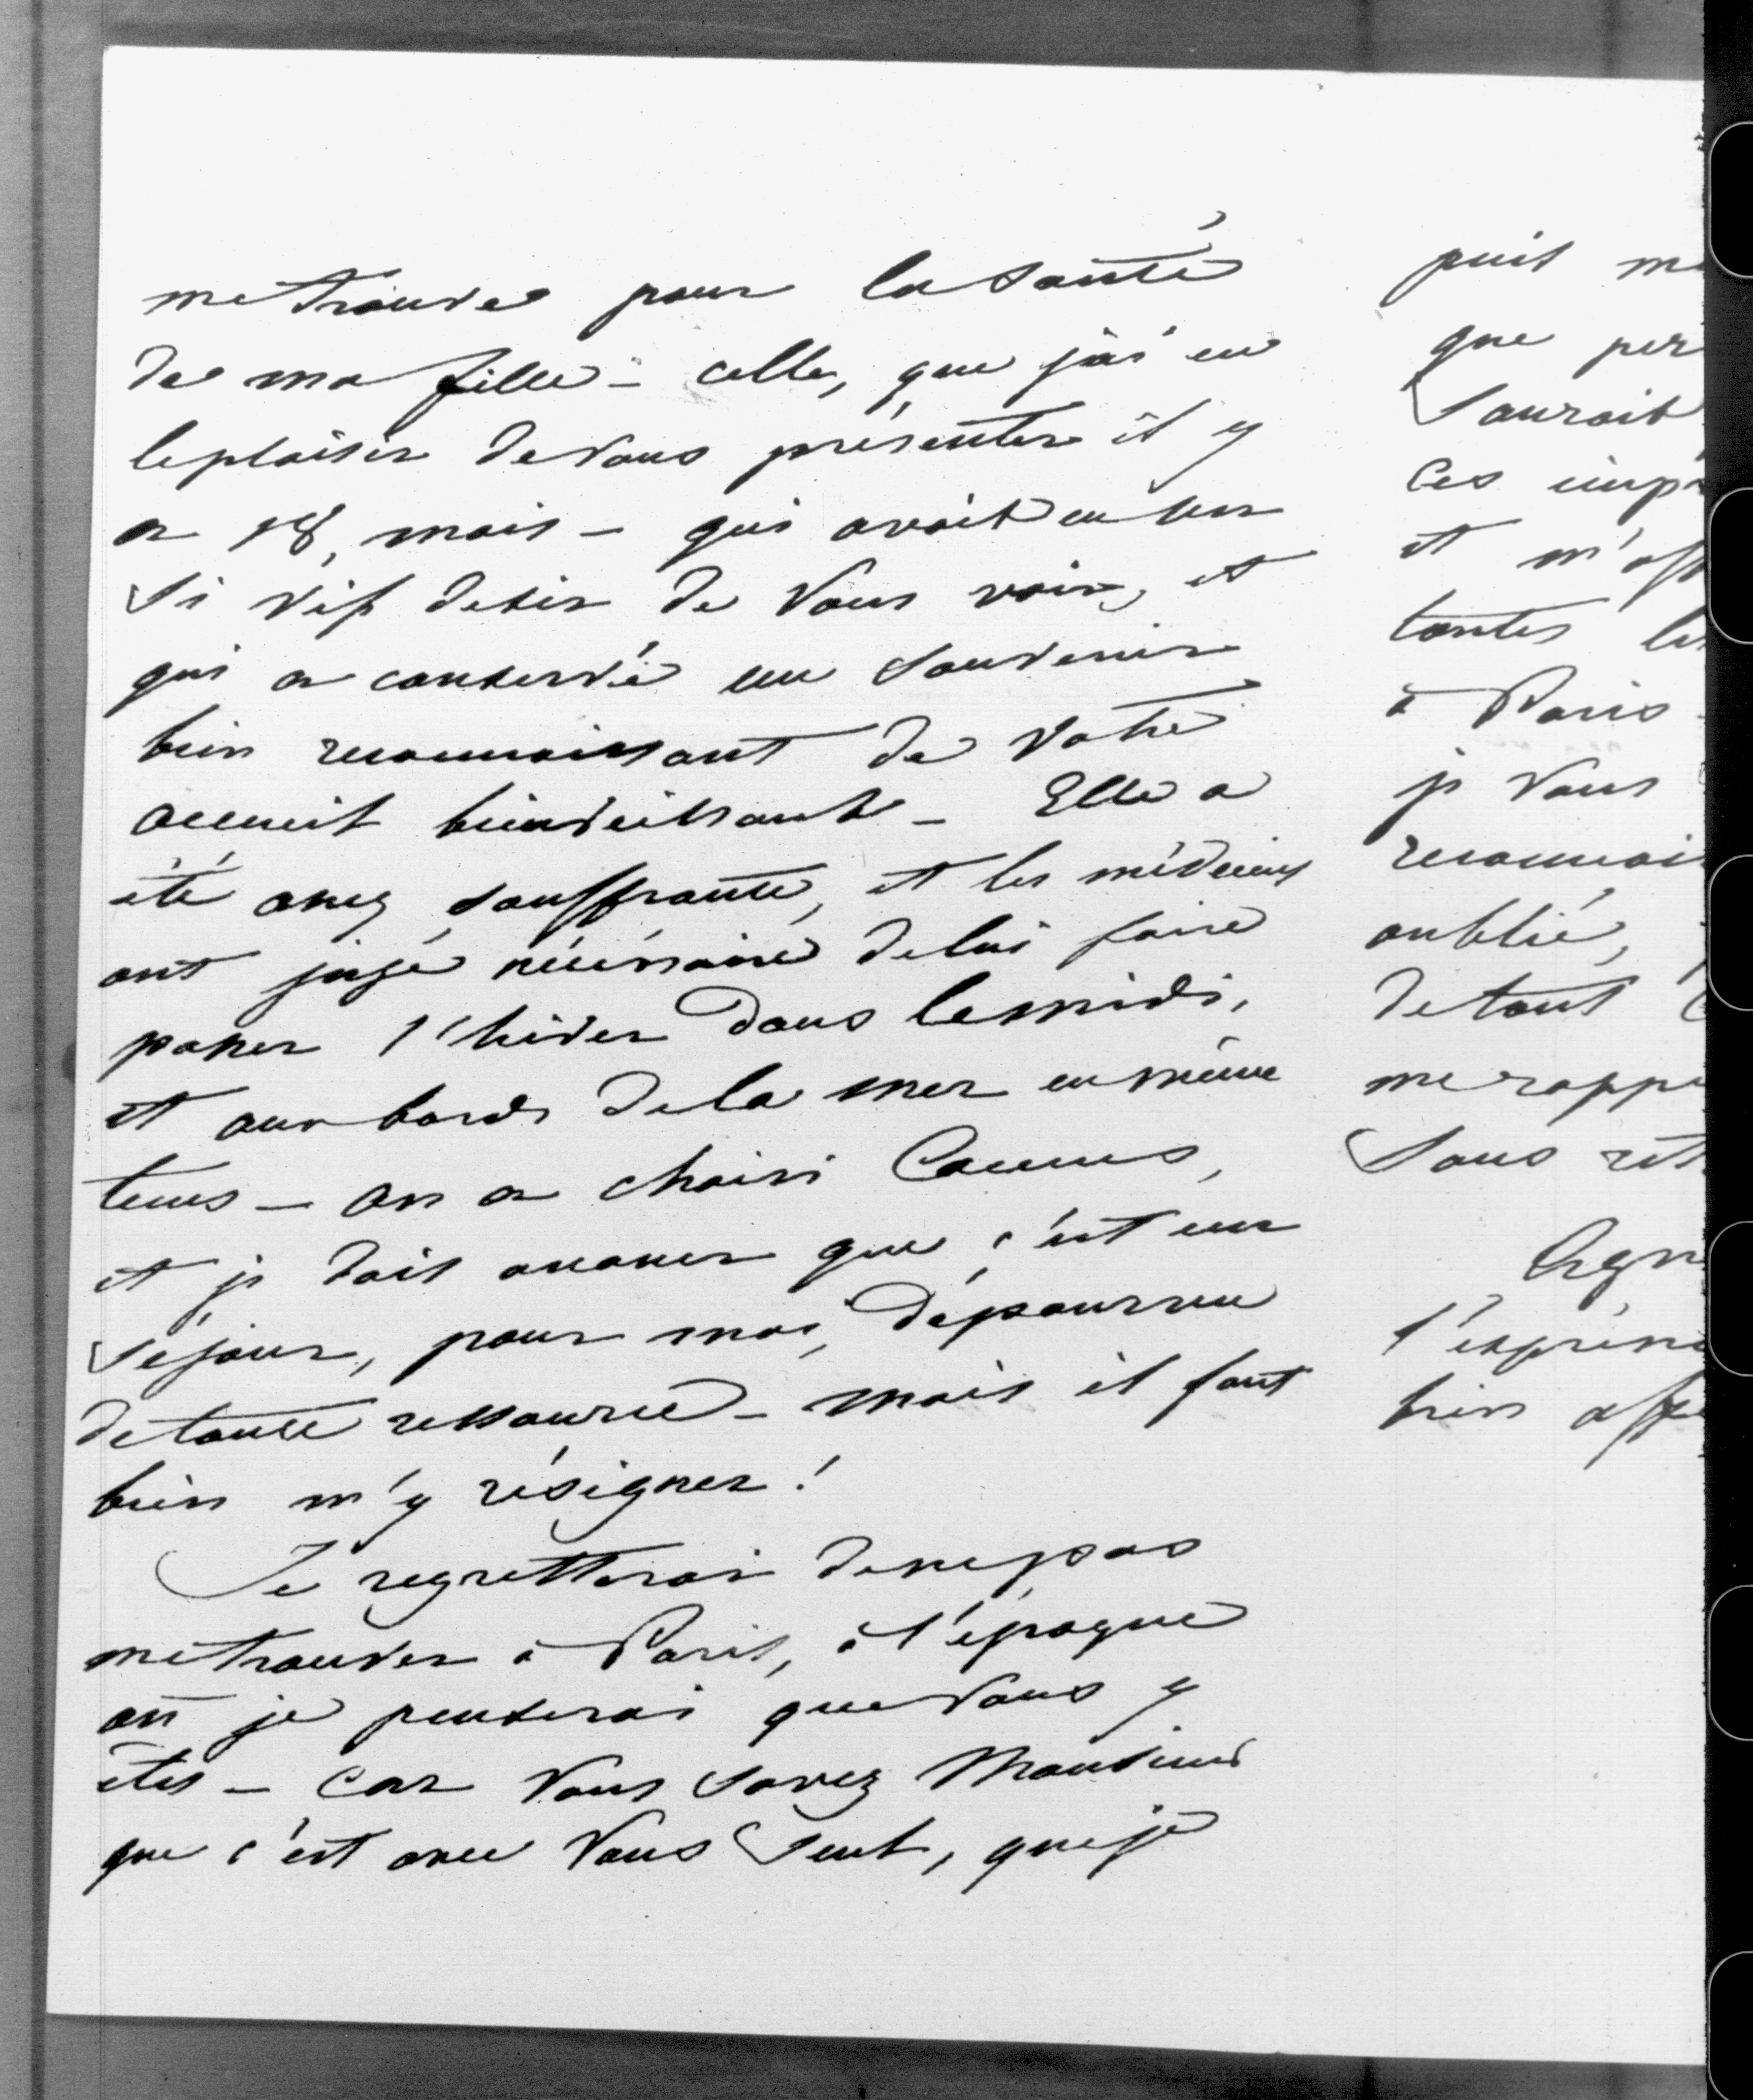 me trouve pour la santé
de ma fille – celle, que j'ai eu
le plaisir de vous présenter il y
a 18 mois – qui avait eu un
si vif desir de vous voir, et
qui a conservé un souvenir
bien reconnaissant de votre
accueil bienveillant – Elle a
été assez souffrante, et les médecins
ont jugé nécéssaire de lui faire
passer l'hiver dans le midi,
et aux bords de la mer en même
tems – on a choisi Cannes,
et je dois avouer que c'est un
séjour, pour moi, dépourvu
de toute ressource – mais il faut
bien m'y résigner !
Je regretterai de ne pas
me trouver à Paris, à l'époque
où je penserai que vous y
êtes – car vous savez Monsieur
que c'est avec vous seul, que je
puis
que
saurait
Ces
et
toutes
à Paris
je vous
oublié,
de tout
me
sans
bien